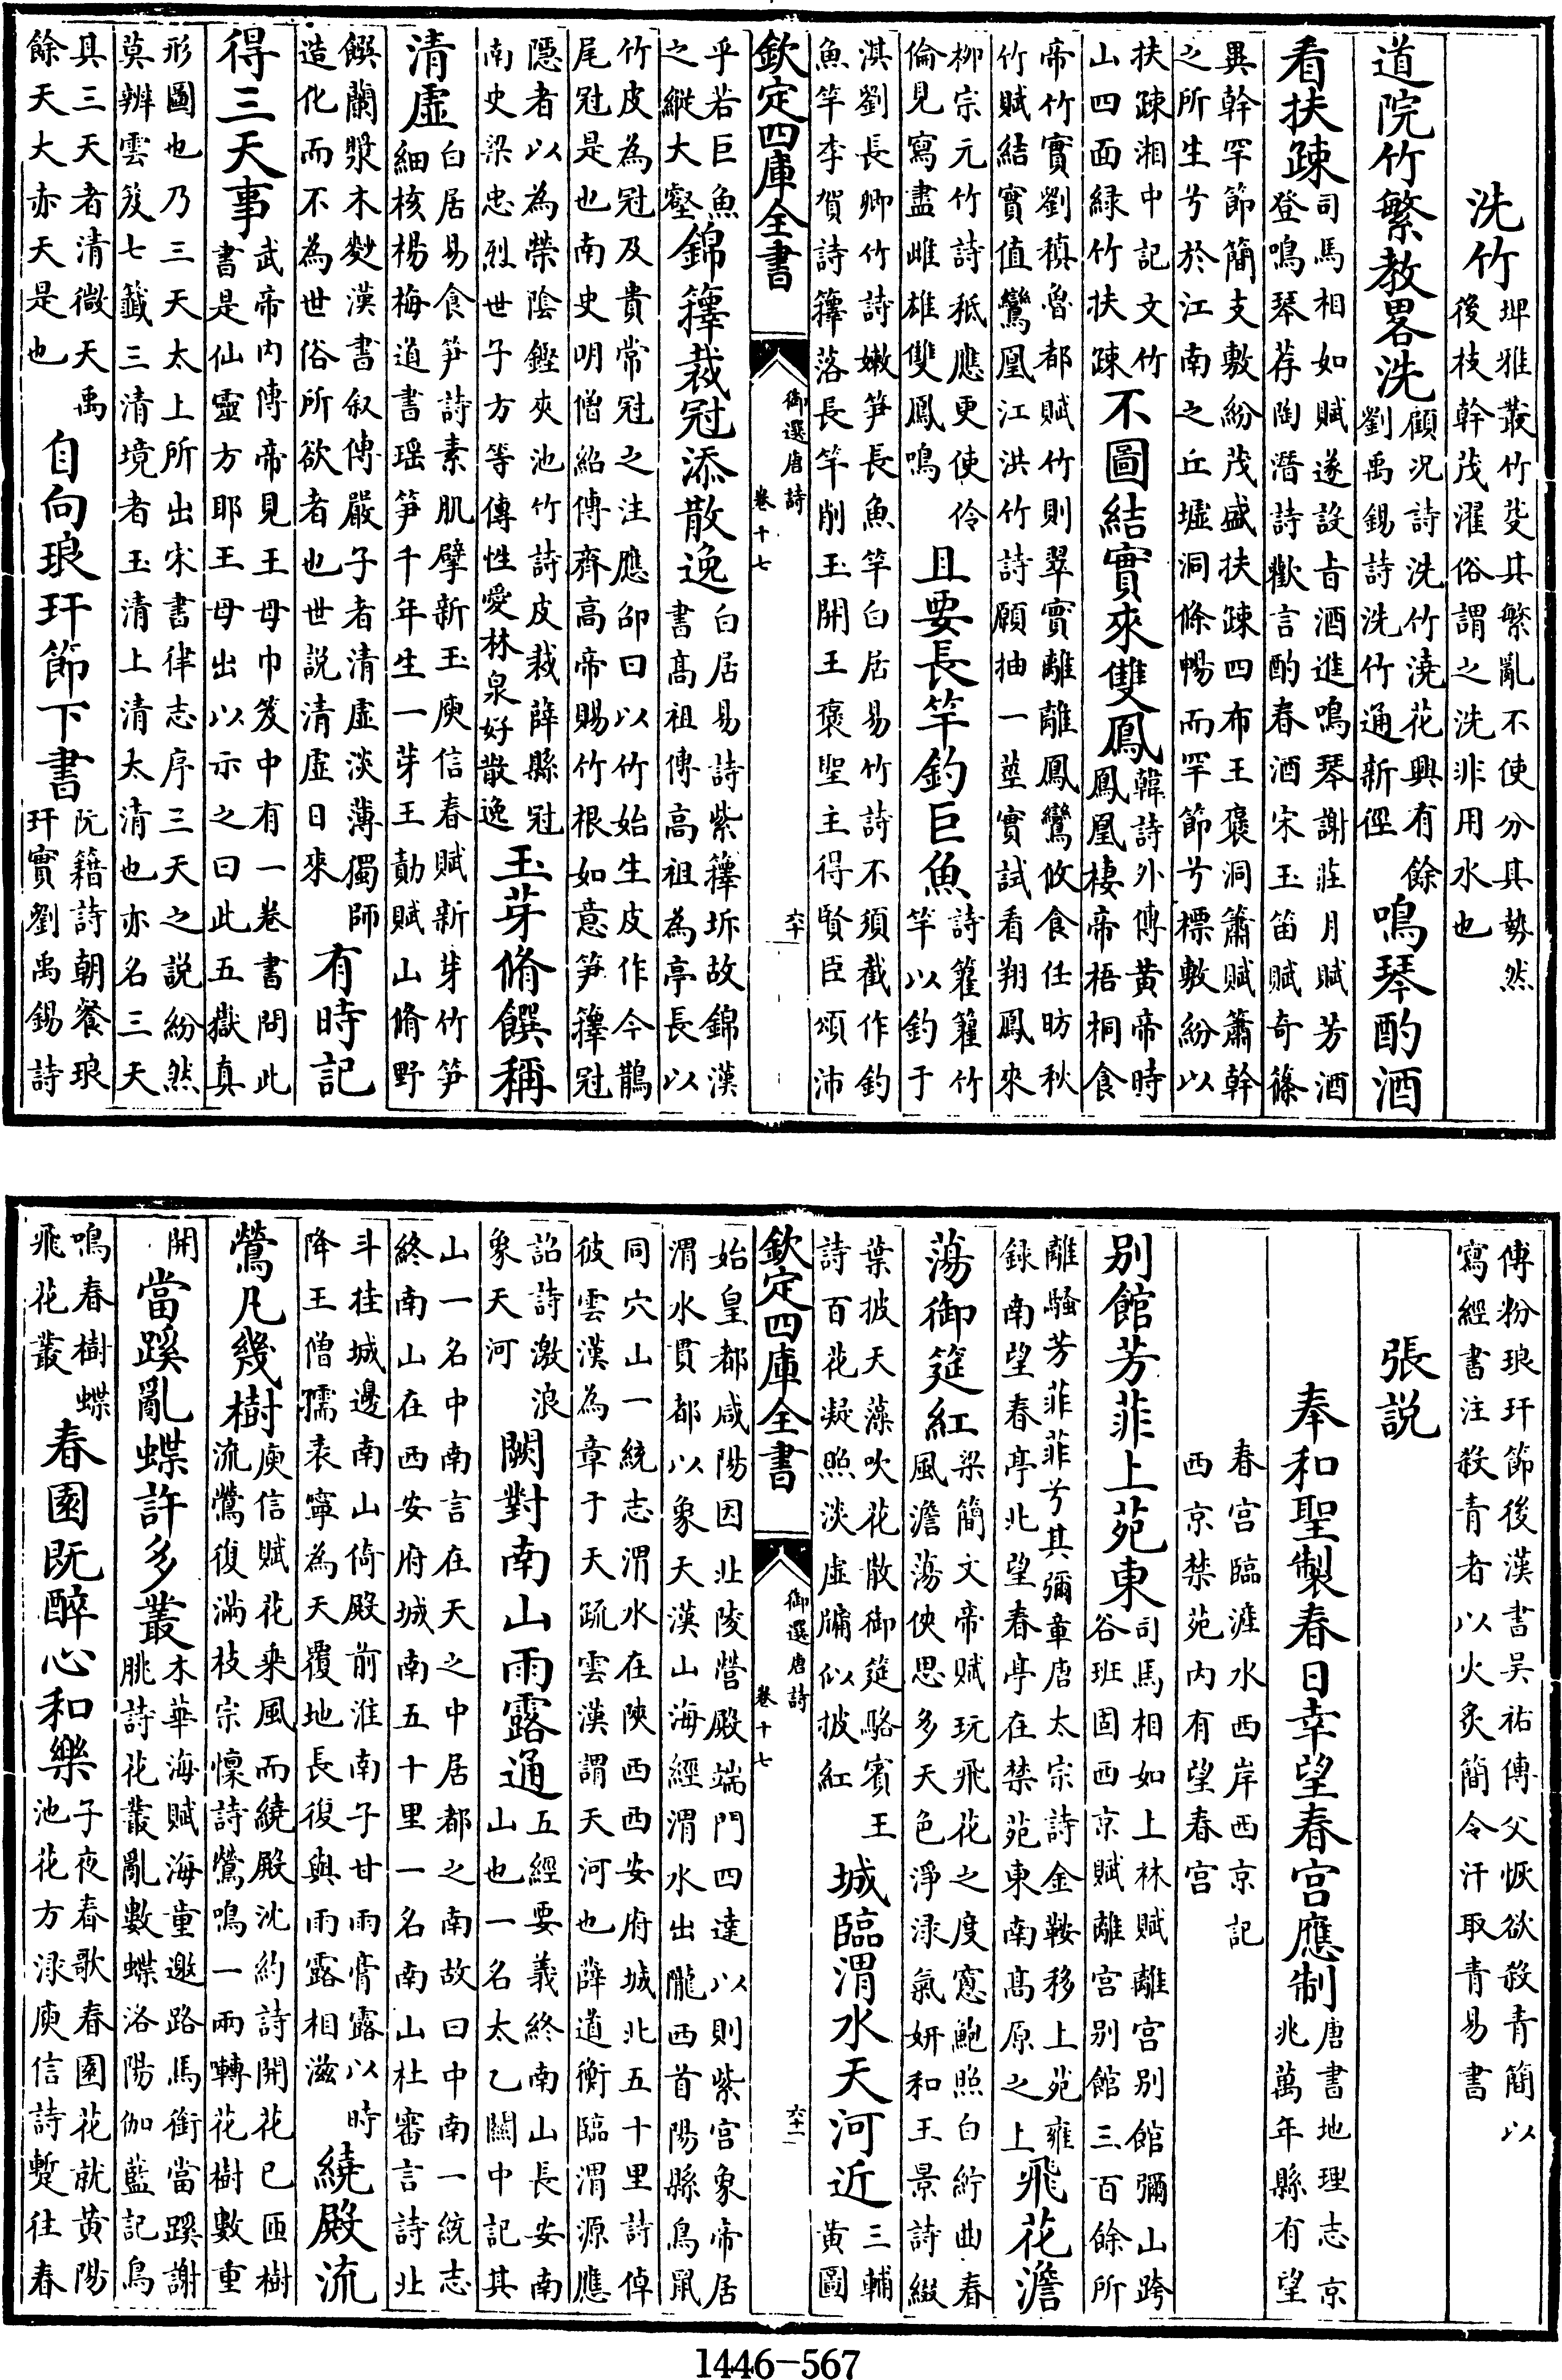 洗竹
埤雅叢竹芟其繁亂不使分其勢然
後枝幹茂濯俗謂之洗非用水也
道院竹繁教畧洗
顧況詩洗竹澆花興有餘
劉禹錫詩洗竹通新徑
鳴琴酌酒
看扶疎
司馬相如賦遂設旨酒進鳴琴謝莊月賦芳酒
登鳴琴荐陶潛詩歡言酌春酒宋玉笛賦奇篠
異幹罕節簡支敷紛茂盛扶疎四布王褒洞簫賦簫幹
之所生兮於江南之丘墟洞條暢而罕節兮標敷紛以
扶疎湘中記文竹
山四面緑竹扶疎
不圖結實來雙鳳
韓詩外傳黃帝時
鳳凰棲帝梧桐食
帝竹實劉稹魯都賦竹則翠實離離鳳鸞攸食任昉秋
竹賦結實值鸞凰江洪竹詩願抽一莖實試看翔鳳來
柳宗元竹詩秪應更使伶
倫見寫盡雌雄雙鳳鳴
且要長竿釣巨魚
詩籊籊竹
竿以釣于
淇劉長卿竹詩嫩笋長魚竿白居易竹詩不須截作釣
魚竿李賀詩籜落長竿削玉開王褒聖主得賢臣頌沛
欽定四庫全書
御選唐詩
卷十七
六十
乎若巨魚
之縱大壑
錦籜裁冠添散逸
白居易詩紫籜坼故錦漢
書高祖傳高祖為亭長以
竹皮為冠及貴常冠之注應邵曰以竹始生皮作今鵲
尾冠是也南史明僧紹傳齊高帝賜竹根如意笋籜冠
隱者以為榮陰鏗夾池竹詩皮裁薛縣冠
南史梁忠烈世子方等傳性愛林泉好散逸
玉芽脩饌稱
清虛
白居易食笋詩素肌擘新玉庾信春賦新芽竹笋
細核楊梅道書瑶笋千年生一芽王勣賦山脩野
饌蘭漿木麨漢書叙傳嚴子者清虛淡薄獨師
造化而不為世俗所欲者也世説清虛日來
有時記
得三天事
武帝内傳帝見王母巾笈中有一卷書問此
書是仙靈方耶王母出以示之曰此五嶽真
形圖也乃三天太上所出宋書律志序三天之説紛然
莫辨雲笈七籤三清境者玉清上清太清也亦名三天
具三天者清微天禹
餘天大赤天是也
自向琅玕節下書
阮籍詩朝餐琅
玕實劉禹錫詩
傅粉琅玕節後漢書吳祐傳父恢欲殺青簡以
寫經書注殺青者以火炙簡令汗取青易書
張説
奉和聖製春日幸望春宫應制
唐書地理志京
兆萬年縣有望
春宫臨滻水西岸西京記
西京禁苑内有望春宫
别館芳菲上苑東
司馬相如上林賦離宫别館彌山跨
谷班固西京賦離宫别館三百餘所
離騷芳菲菲兮其彌章唐太宗詩金鞍移上苑雍
録南望春亭北望春亭在禁苑東南高原之上
飛花澹
蕩御筵紅
梁簡文帝賦玩飛花之度窻鮑照白紵曲春
風澹蕩俠思多天色淨渌氣妍和王景詩綴
葉披天藻吹花散御筵駱賓王
詩百花凝照淡虛牖似披紅
城臨渭水天河近
三輔
黃圖
欽定四庫全書
御選唐詩
卷十七
六十一
始皇都咸陽因北陵營殿端門四達以則紫宫象帝居
渭水貫都以象天漢山海經渭水出隴西首陽縣鳥鼠
同穴山一統志渭水在陝西西安府城北五十里詩倬
彼雲漢為章于天疏雲漢謂天河也薛道衡臨渭源應
詔詩激浪
象天河
闕對南山雨露通
五經要義終南山長安南
山也一名太乙關中記其
山一名中南言在天之中居都之南故曰中南一統志
終南山在西安府城南五十里一名南山杜審言詩北
斗挂城邊南山倚殿前淮南子甘雨膏露以時
降王僧孺表寧為天覆地長復與雨露相滋
繞殿流
鶯凡幾樹
庾信賦花乘風而繞殿沈約詩開花已匝樹
流鶯復滿枝宗懍詩鶯鳴一兩囀花樹數重
開
當蹊亂蝶許多叢
木華海賦海童邀路馬銜當蹊謝
朓詩花叢亂數蝶洛陽伽藍記鳥
鳴春樹蝶
飛花叢
春園既醉心和樂
子夜春歌春園花就黃陽
池花方渌庾信詩蹔往春
1446-567